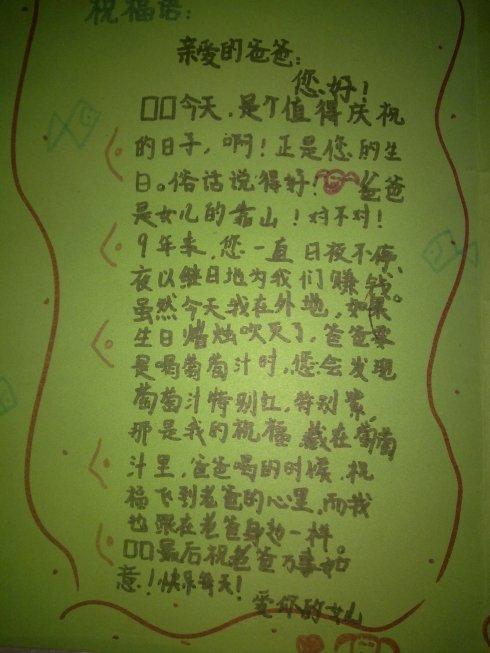 祝福语:
亲爱的爸爸:
您好!
□□今天,是个值得庆祝
的日子,啊!正是您的生
日。俗话说得好!爸爸
是女儿的靠山!对不对!
9年来,您一直日夜不停、
夜以继日地为我们赚钱。
虽然今天我在外地,如果
生日蜡烛吹灭了,爸爸要
是喝葡萄汁时,您会发现
葡萄汁特别红,特别紫,
那是我的祝福藏在葡萄
汁里,爸爸喝的时候,祝
福飞到老爸的心里,而我
也跟在老爸身边一样。
□□最后祝老爸万事如
意!快乐每天!
爱你的女儿